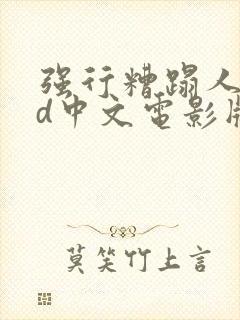 强行糟蹋人
d中文电影版
莫笑竹上言